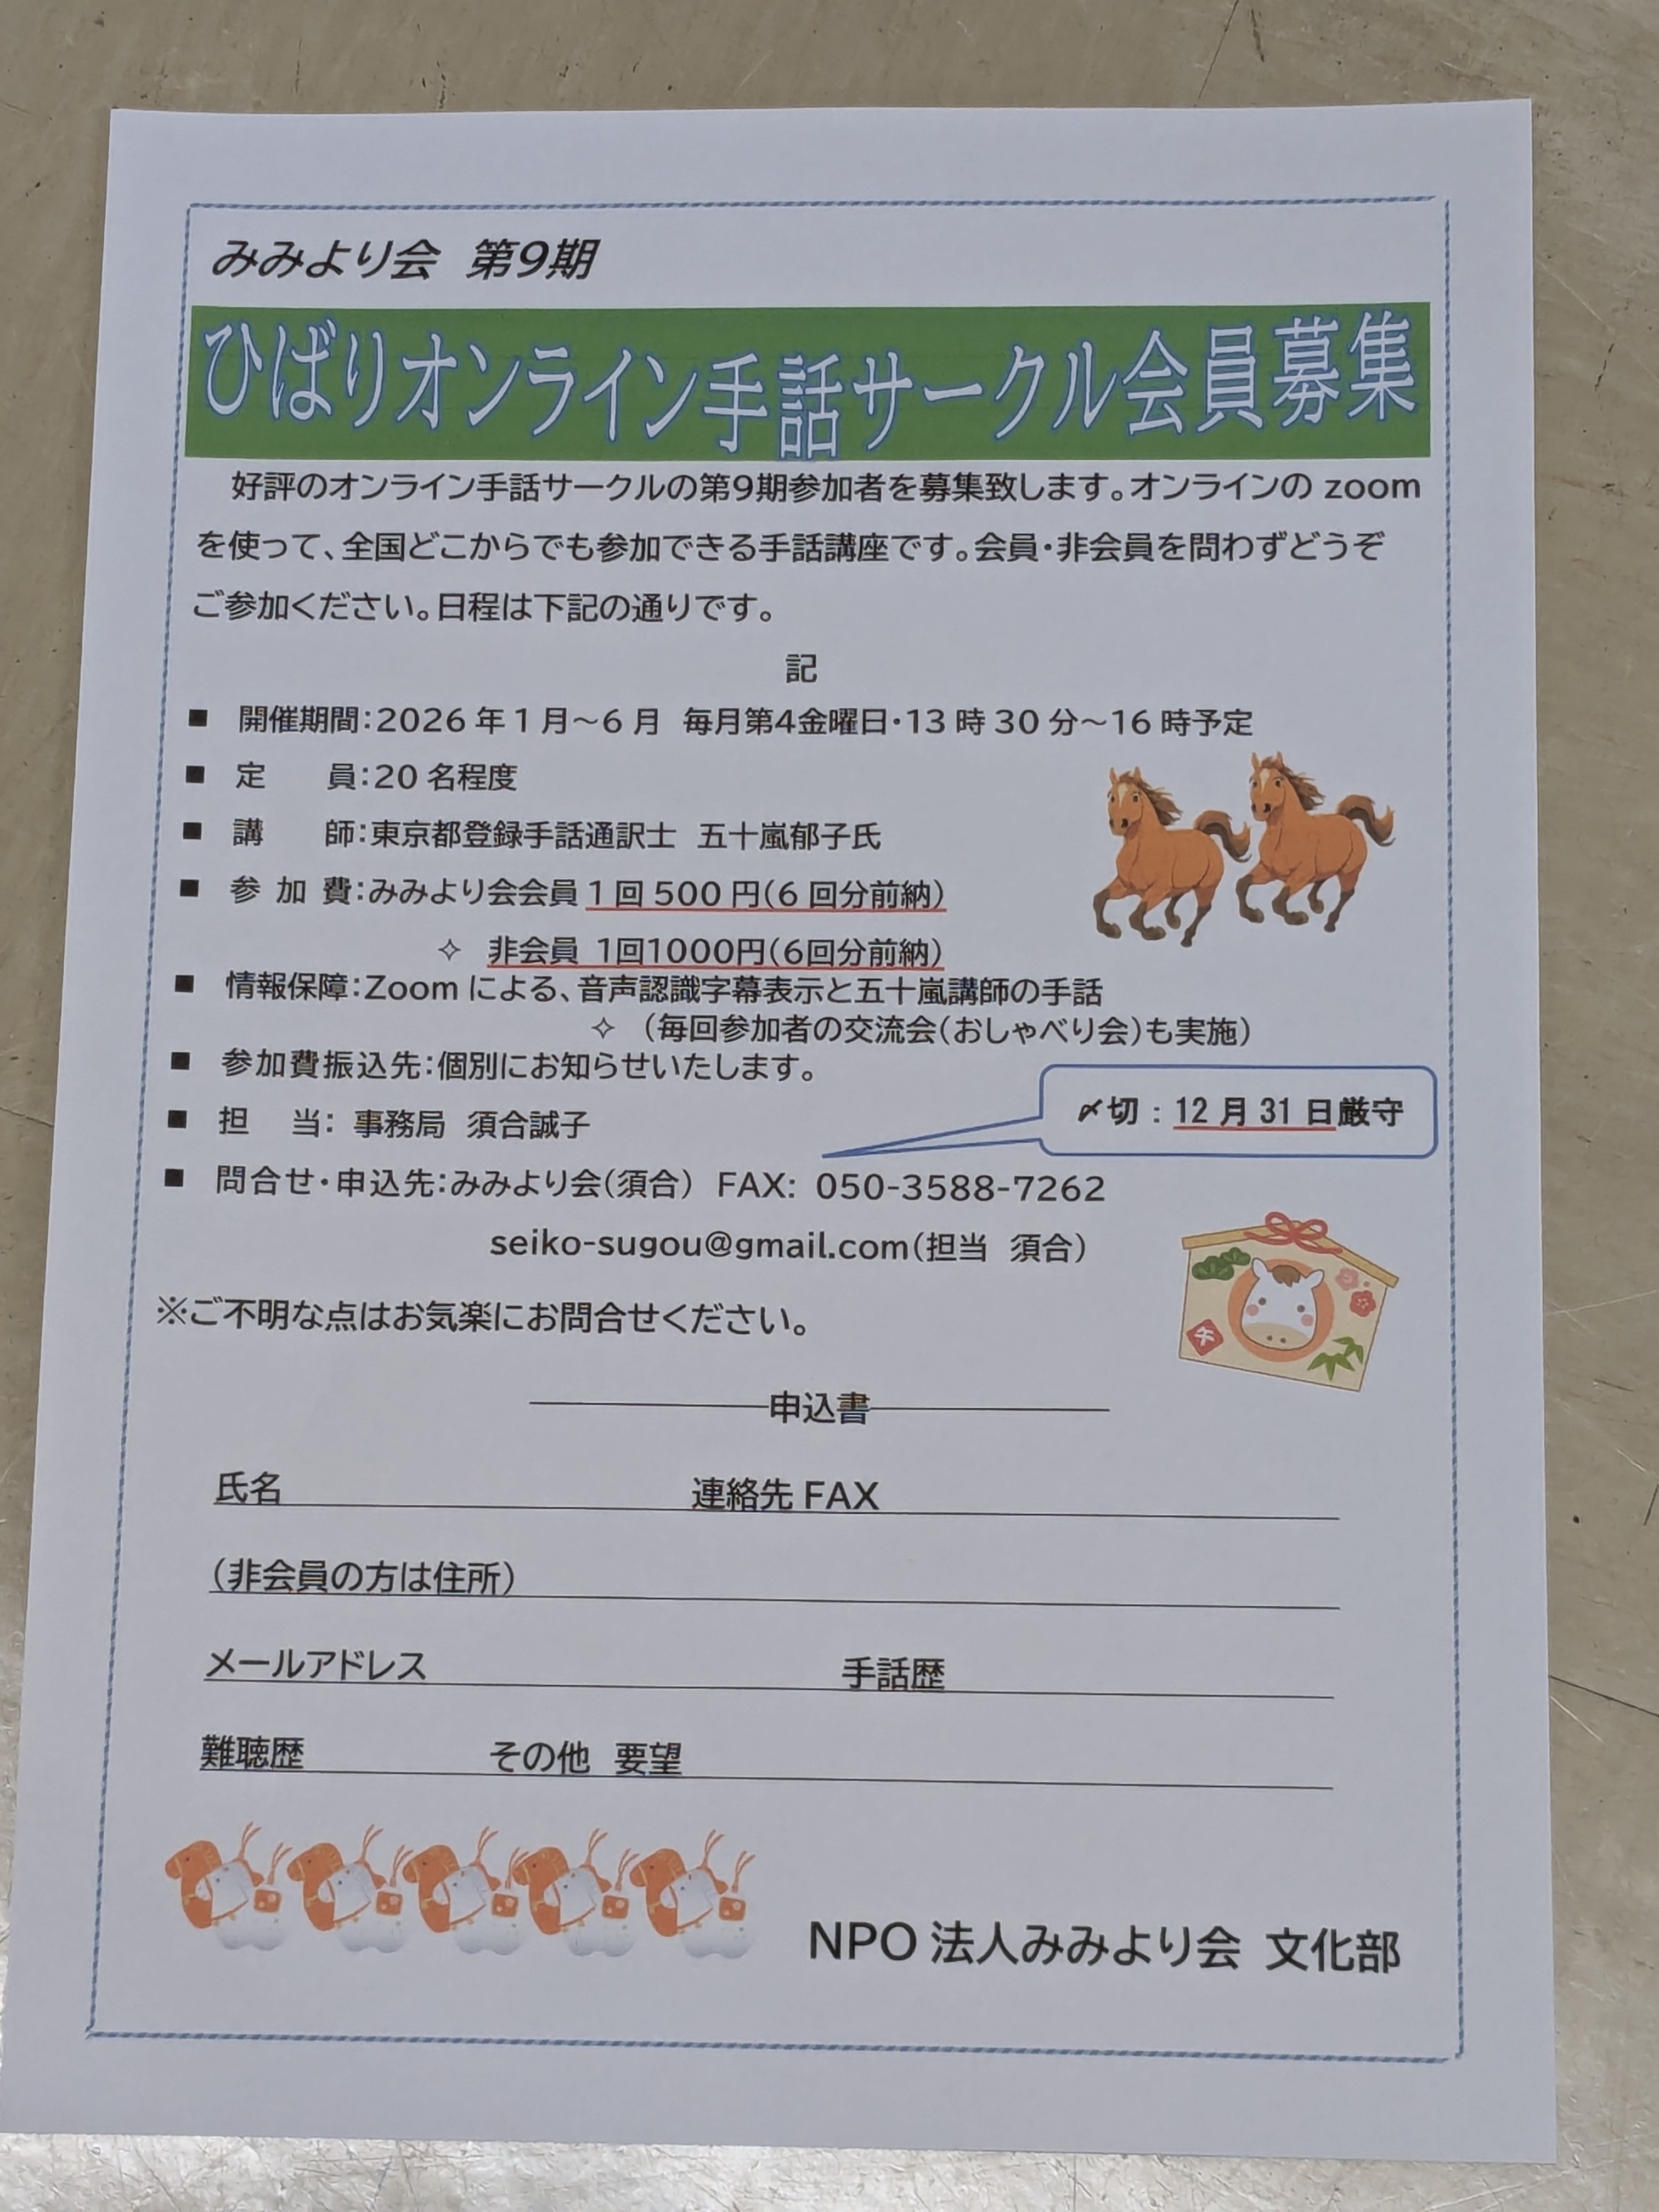 みみより会 第9期
ひばりオンライン手話サークル会員募集
好評のオンライン手話サークルの第9期参加者を募集致します。オンラインの zoom
を使って、全国どこからでも参加できる手話講座です。会員・非会員を問わずどうぞ
ご参加ください。日程は下記の通りです。
記
■ 開催期間：2026 年 1 月～6 月 毎月第4金曜日・13 時 30 分～16 時予定
■ 定 員：20 名程度
■ 講 師：東京都登録手話通訳士 五十嵐郁子氏
■ 参 加 費：みみより会会員 1 回 500 円（6 回分前納）
✧ 非会員 1回1000円（6回分前納）
■ 情報保障：Zoom による、音声認識字幕表示と五十嵐講師の手話
✧ （毎回参加者の交流会（おしゃべり会）も実施）
■ 参加費振込先：個別にお知らせいたします。
〆切：12 月 31 日厳守
■ 担 当： 事務局 須合誠子
■ 問合せ・申込先：みみより会（須合） FAX: 050-3588-7262
seiko-sugou@gmail.com（担当 須合）
※ご不明な点はお気楽にお問合せください。
午
申込書
氏名 連絡先 FAX
（非会員の方は住所）
メールアドレス 手話歴
難聴歴 その他 要望
NPO 法人みみより会 文化部